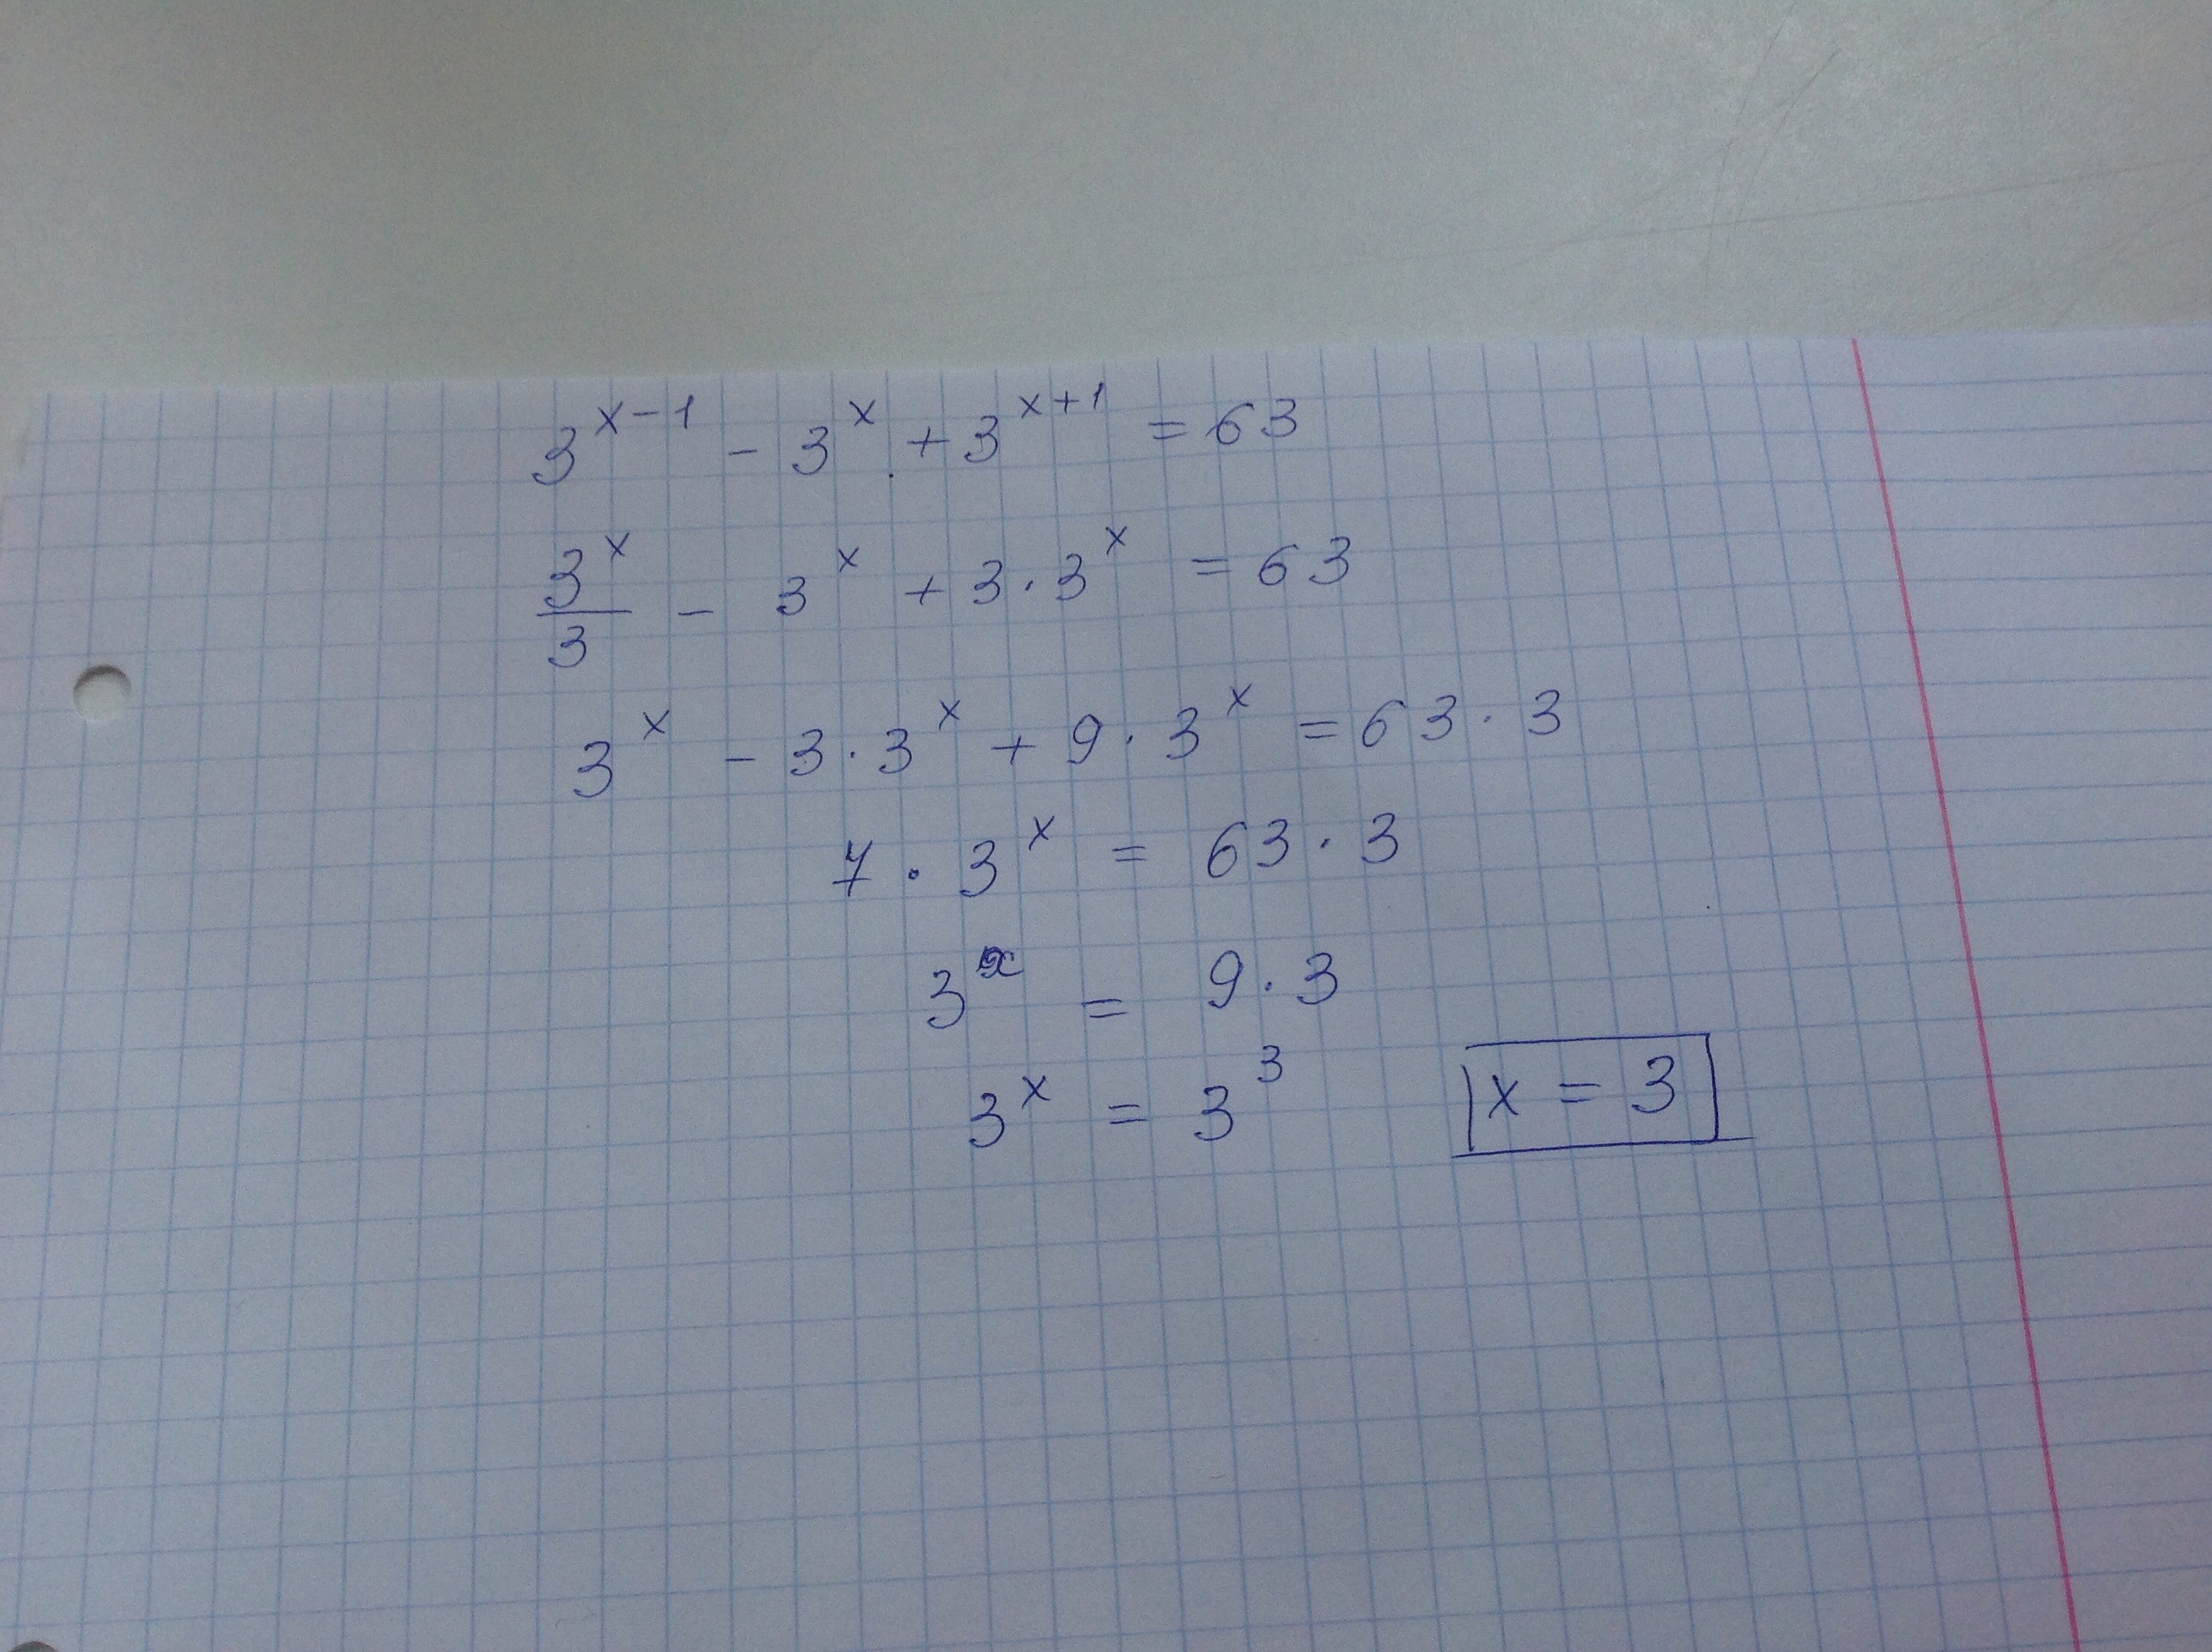 3^{x-1} - 3^x + 3^{x+1} = 63
\frac{3^x}{3} - 3^x + 3 · 3^x = 63
3^x - 3 · 3^x + 9 · 3^x = 63 · 3
7 · 3^x = 63 · 3
3^x = 9 · 3
3^x = 3^3 x = 3